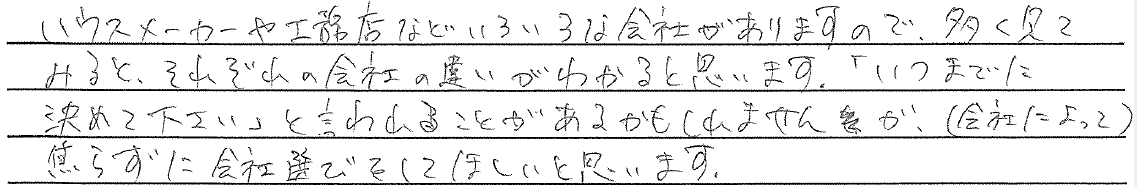 ハウスメーカーや工務店などいろいろな会社がありますので、多く見て
みると、それぞれの会社の違いがわかると思います。「いつまでに
決めて下さい」と言われることがあるかもしれませんが、(会社によって)
焦らずに会社選びをしてほしいと思います。